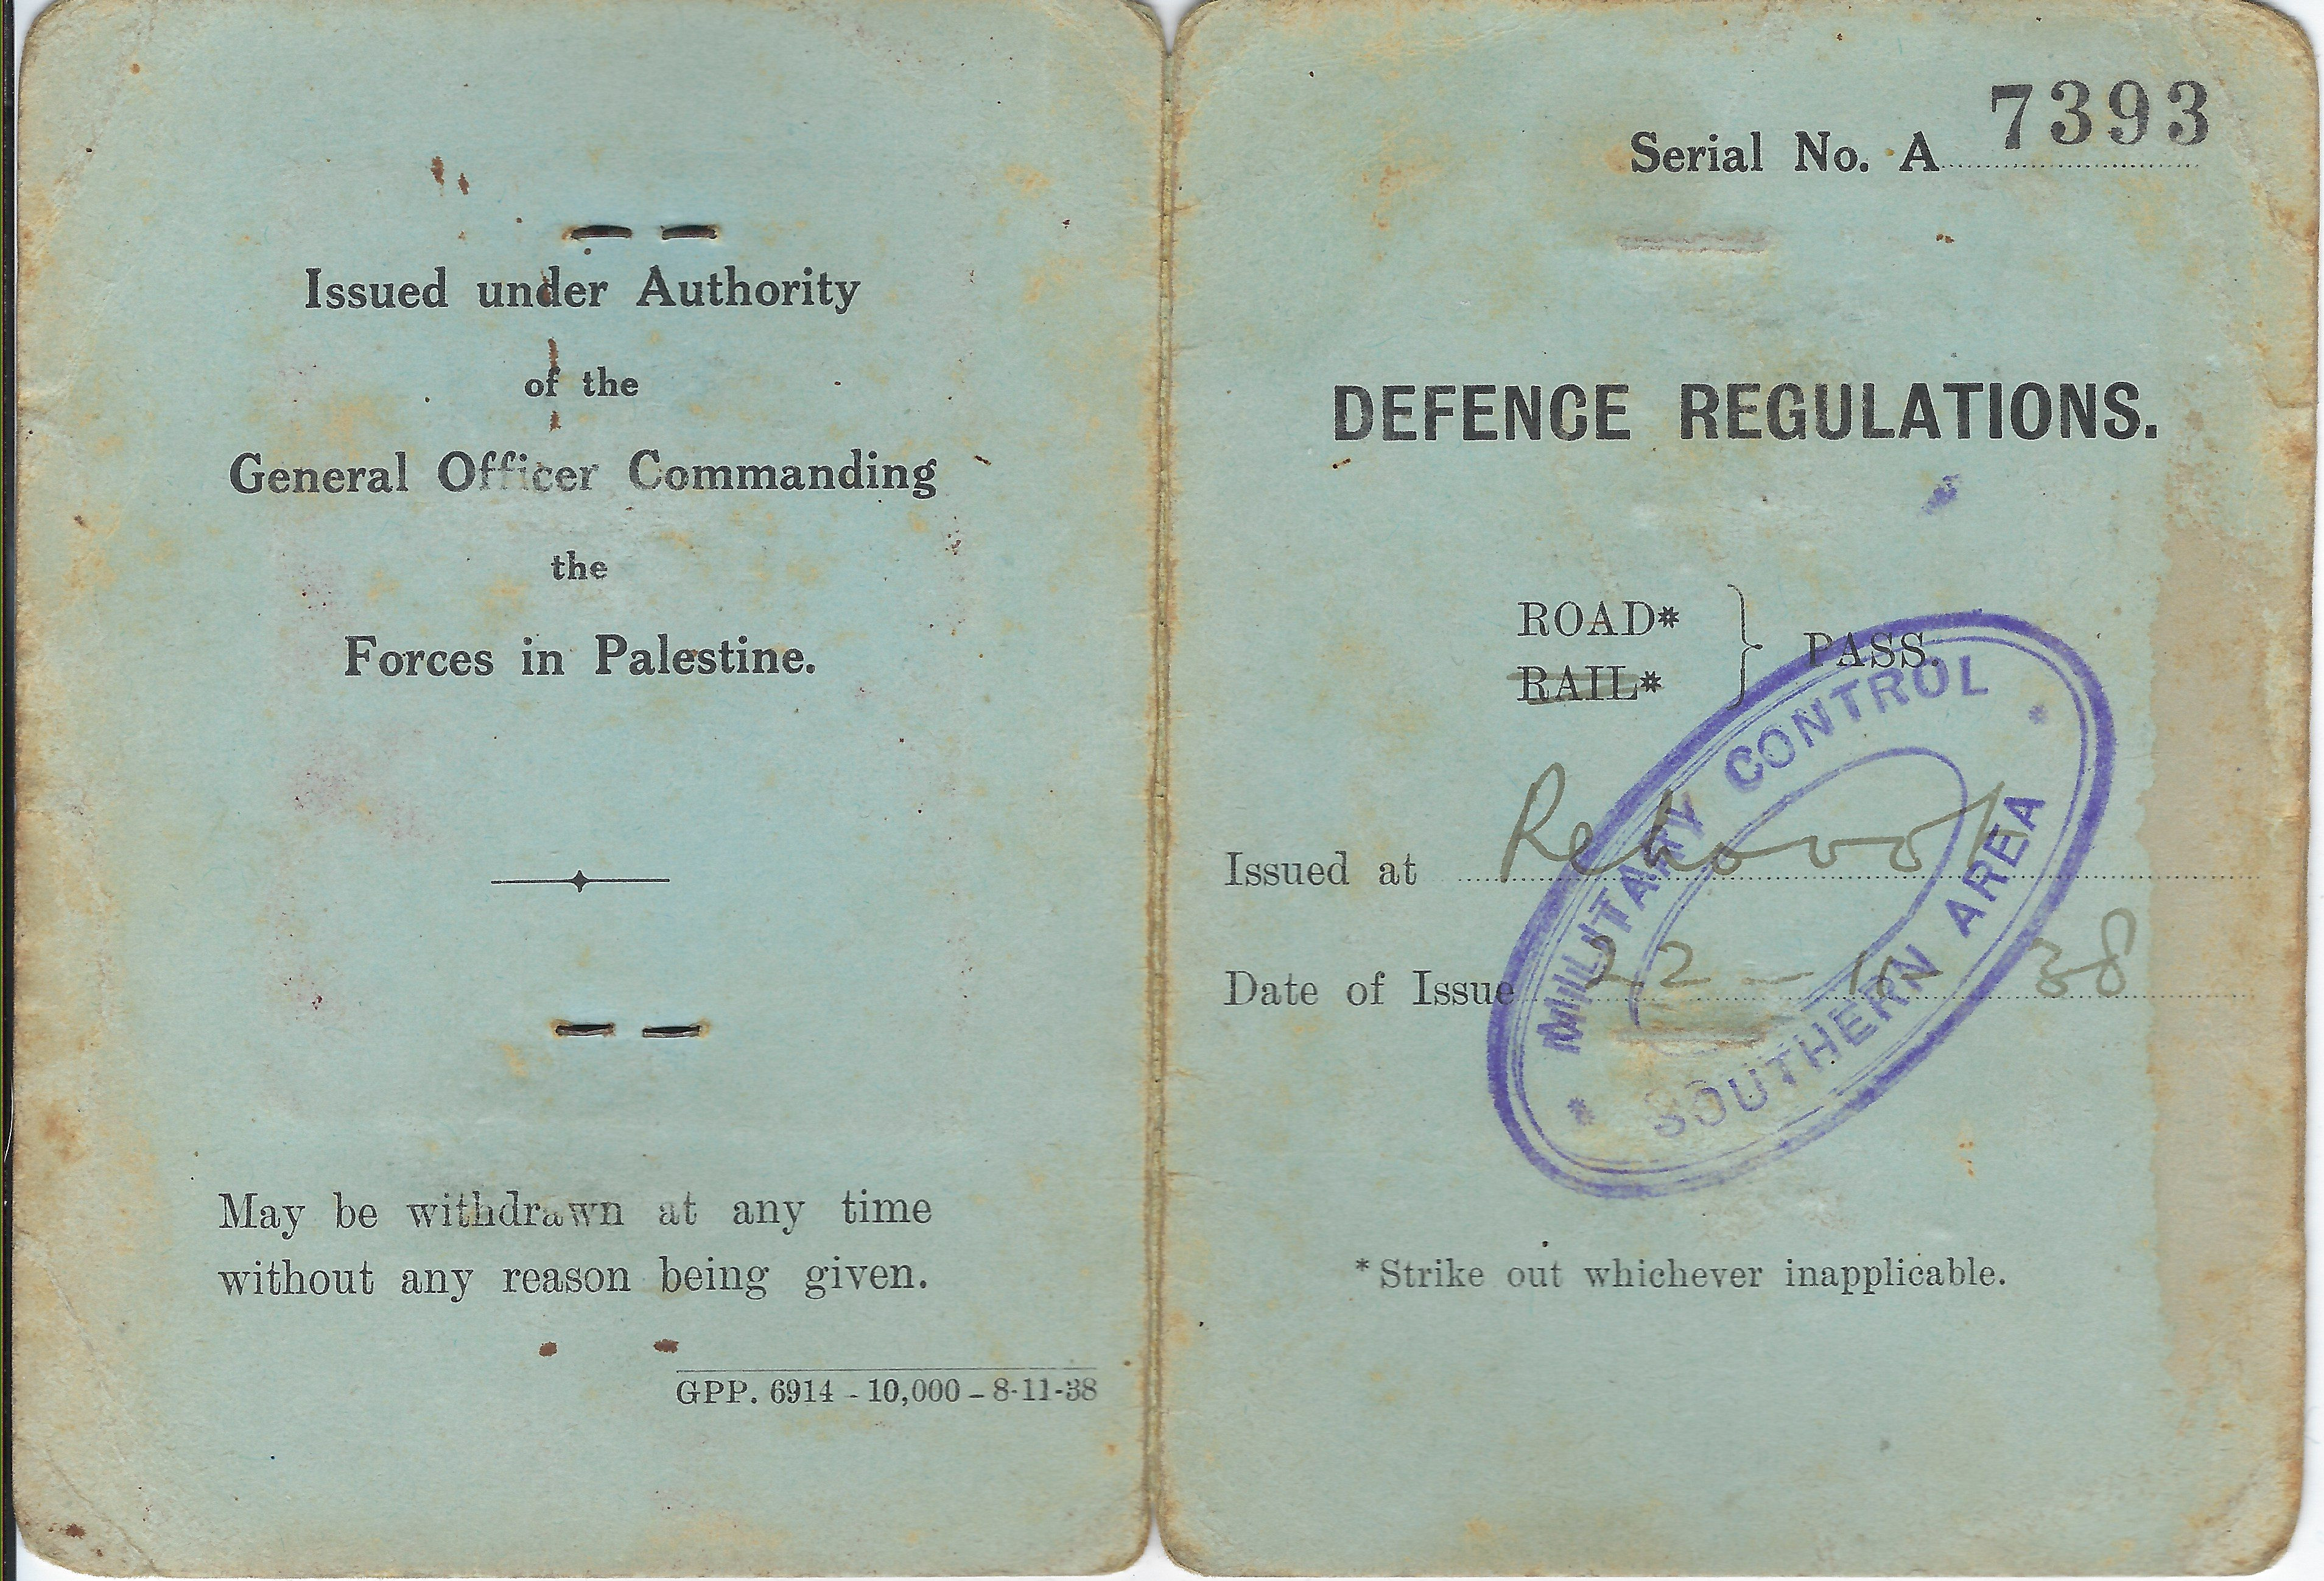 Issued under Authority
of the
General Officer Commanding
the
Forces in Palestine.
May be withdrawn at any time
without any reason being given.
GPP. 6914 - 10,000 - 8-11-38
Serial No. A 7393
DEFENCE REGULATIONS.
ROAD*
RAIL*
PASS.
Issued at Rehovoth
Date of Issue 22 - 38
MILITARY CONTROL
SOUTHERN AREA
*Strike out whichever inapplicable.